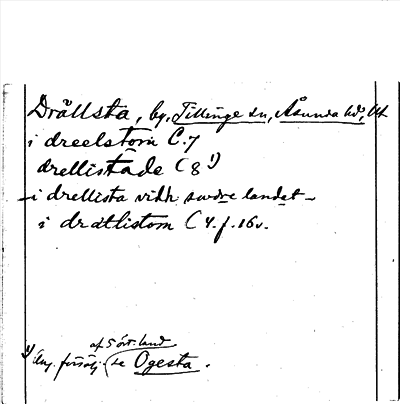 Drällsta, by, Tillinge sn, Åsunda hd, Upl
i dreelstom C.7
drellistade (8 ¹)
– i drellista vidh swdre landet –
i drätlistom (4. f. 16v.
af 5 örs. land
¹) Ang. försälj. (se Ogesta.